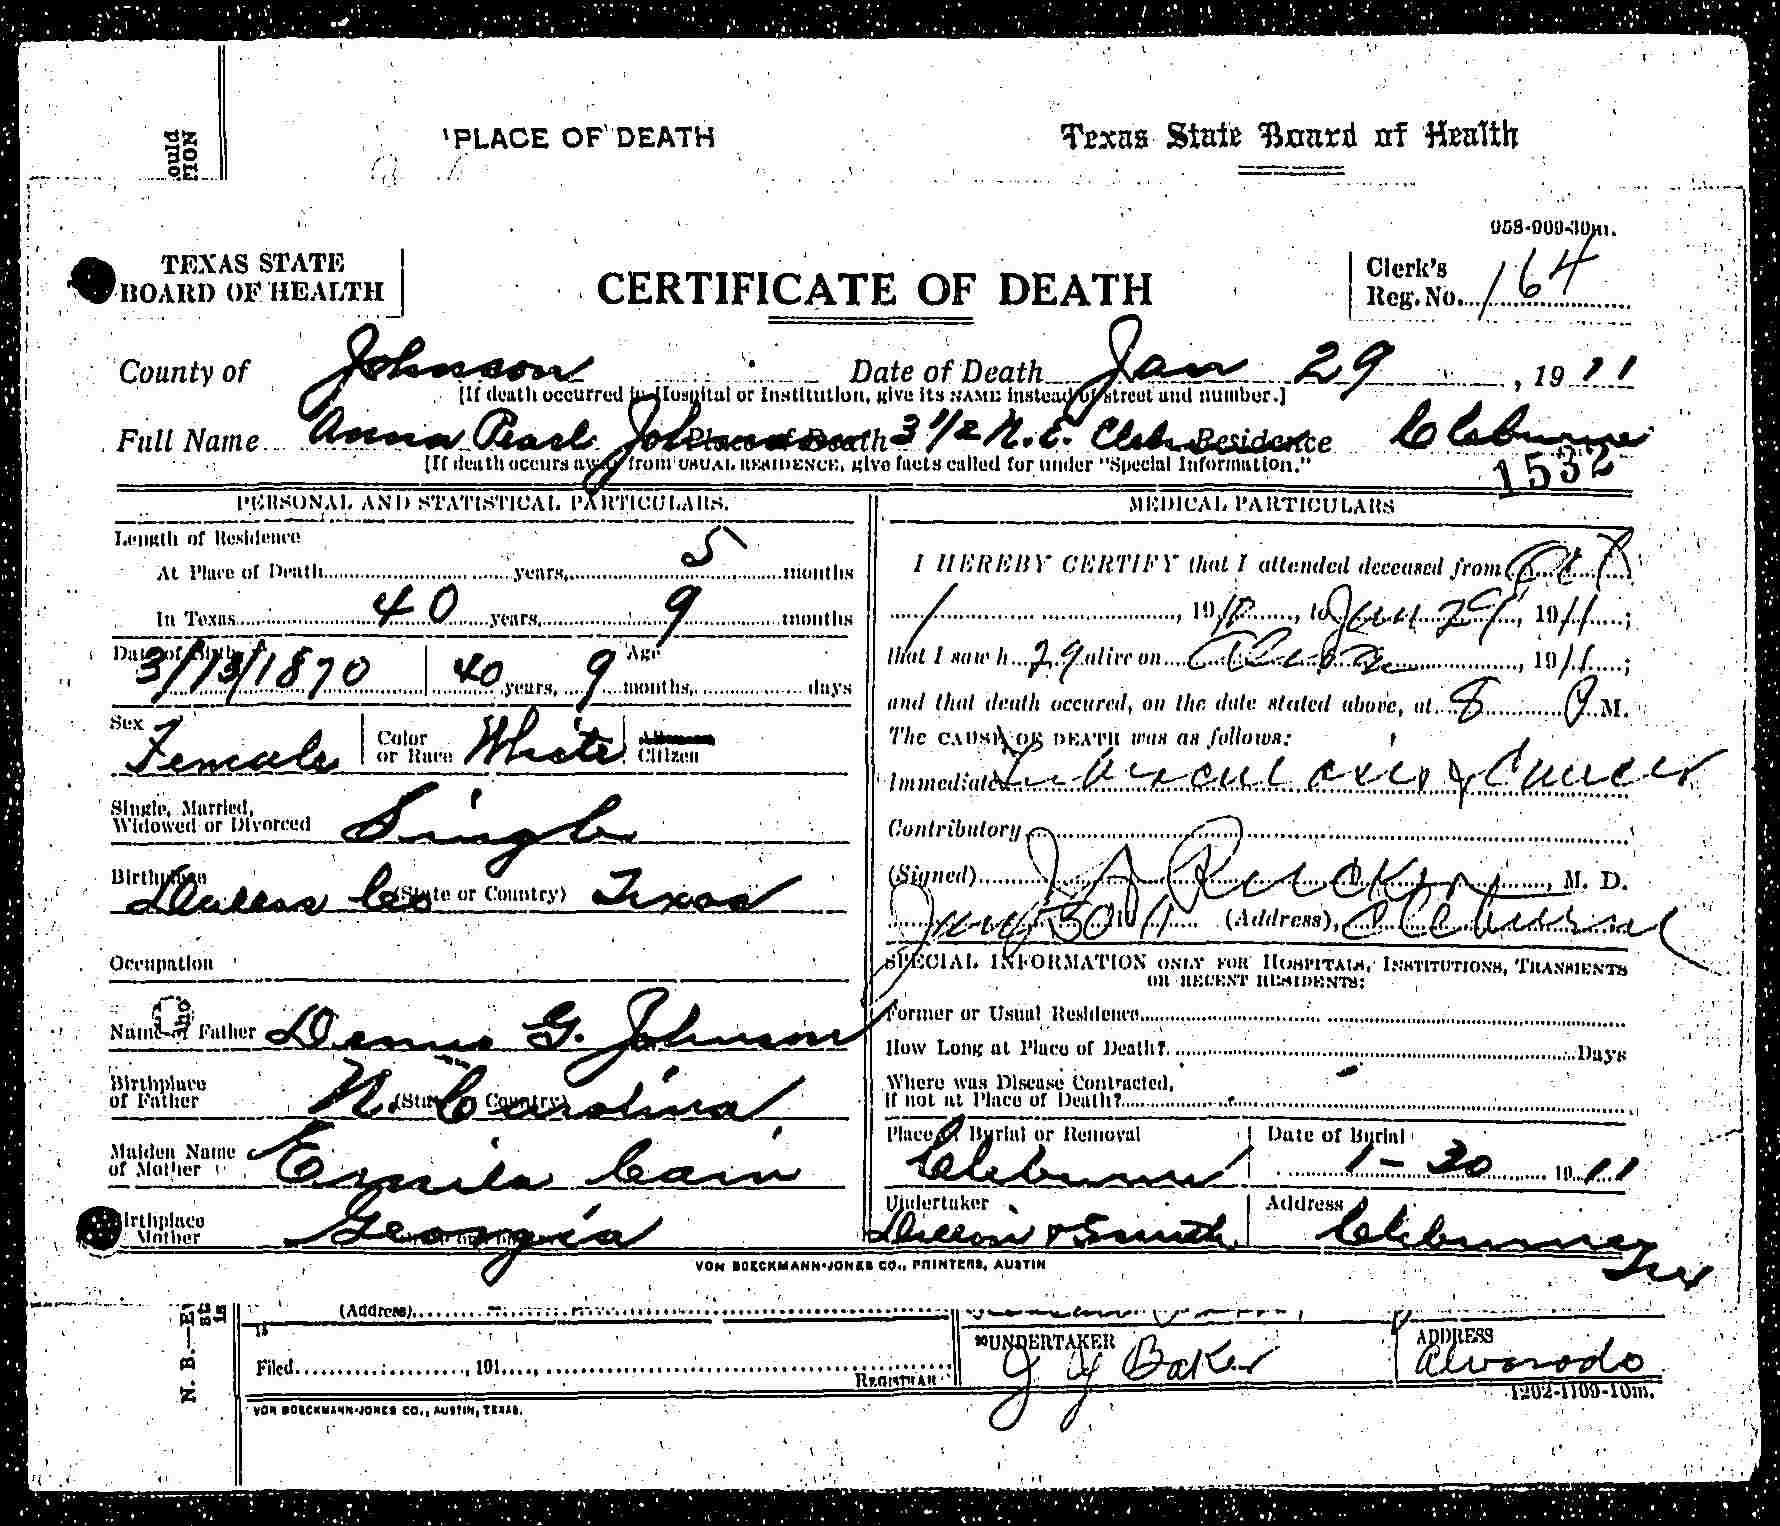 ould
TION
PLACE OF DEATH
Texas State Board of Health
958-909-30m.
TEXAS STATE
BOARD OF HEALTH
CERTIFICATE OF DEATH
Clerk's
Reg. No. 164
County of Johnson Date of Death Jan 29, 1911
[If death occurred in Hospital or Institution, give its NAME instead of street and number.]
Full Name Anna Pearl Johnson Place of Death 3 1/2 N. E. Cleburne Residence Cleburne
[If death occurs away from USUAL RESIDENCE, give facts called for under "Special Information."
1532
PERSONAL AND STATISTICAL PARTICULARS.
Length of Residence
At Place of Death years, 5 months
In Texas 40 years, 9 months
Date of Birth Age
3/13/1870 40 years, 9 months, days
Sex Female Color or Race White Citizen
Single, Married,
Widowed or Divorced Single
Birthplace
Dallas Co (State or Country) Texas
Occupation
Name of Father Dennis G. Johnson
Birthplace
of Father N. Carolina (State or Country)
Maiden Name
of Mother Emila Cain
Birthplace
Mother Georgia
MEDICAL PARTICULARS
I HEREBY CERTIFY that I attended deceased from Oct
1, 1910, to Jan 29, 1911;
that I saw h 29 alive on, 1911;
and that death occured, on the date stated above, at 8 P M.
The CAUSE OF DEATH was as follows:
Immediate Tuberculosis & Cancer
Contributory
(Signed) Rucker, M. D.
Jany 30 11 (Address), Cleburne
SPECIAL INFORMATION ONLY FOR HOSPITALS, INSTITUTIONS, TRANSIENTS
OR RECENT RESIDENTS:
Former or Usual Residence
How Long at Place of Death? Days
Where was Disease Contracted,
if not at Place of Death?
Place of Burial or Removal Date of Burial
Cleburne 1-30 1911
Undertaker Address
Dillon & Smith Cleburne Tex
VON BOECKMANN-JONES CO., PRINTERS, AUSTIN
N. B.—E
(Address)
Filed, 191, REGISTRAR
UNDERTAKER ADDRESS
J Y Baker Alvorado
1202-1109-10m.
VON BOECKMANN-JONES CO., AUSTIN, TEXAS.